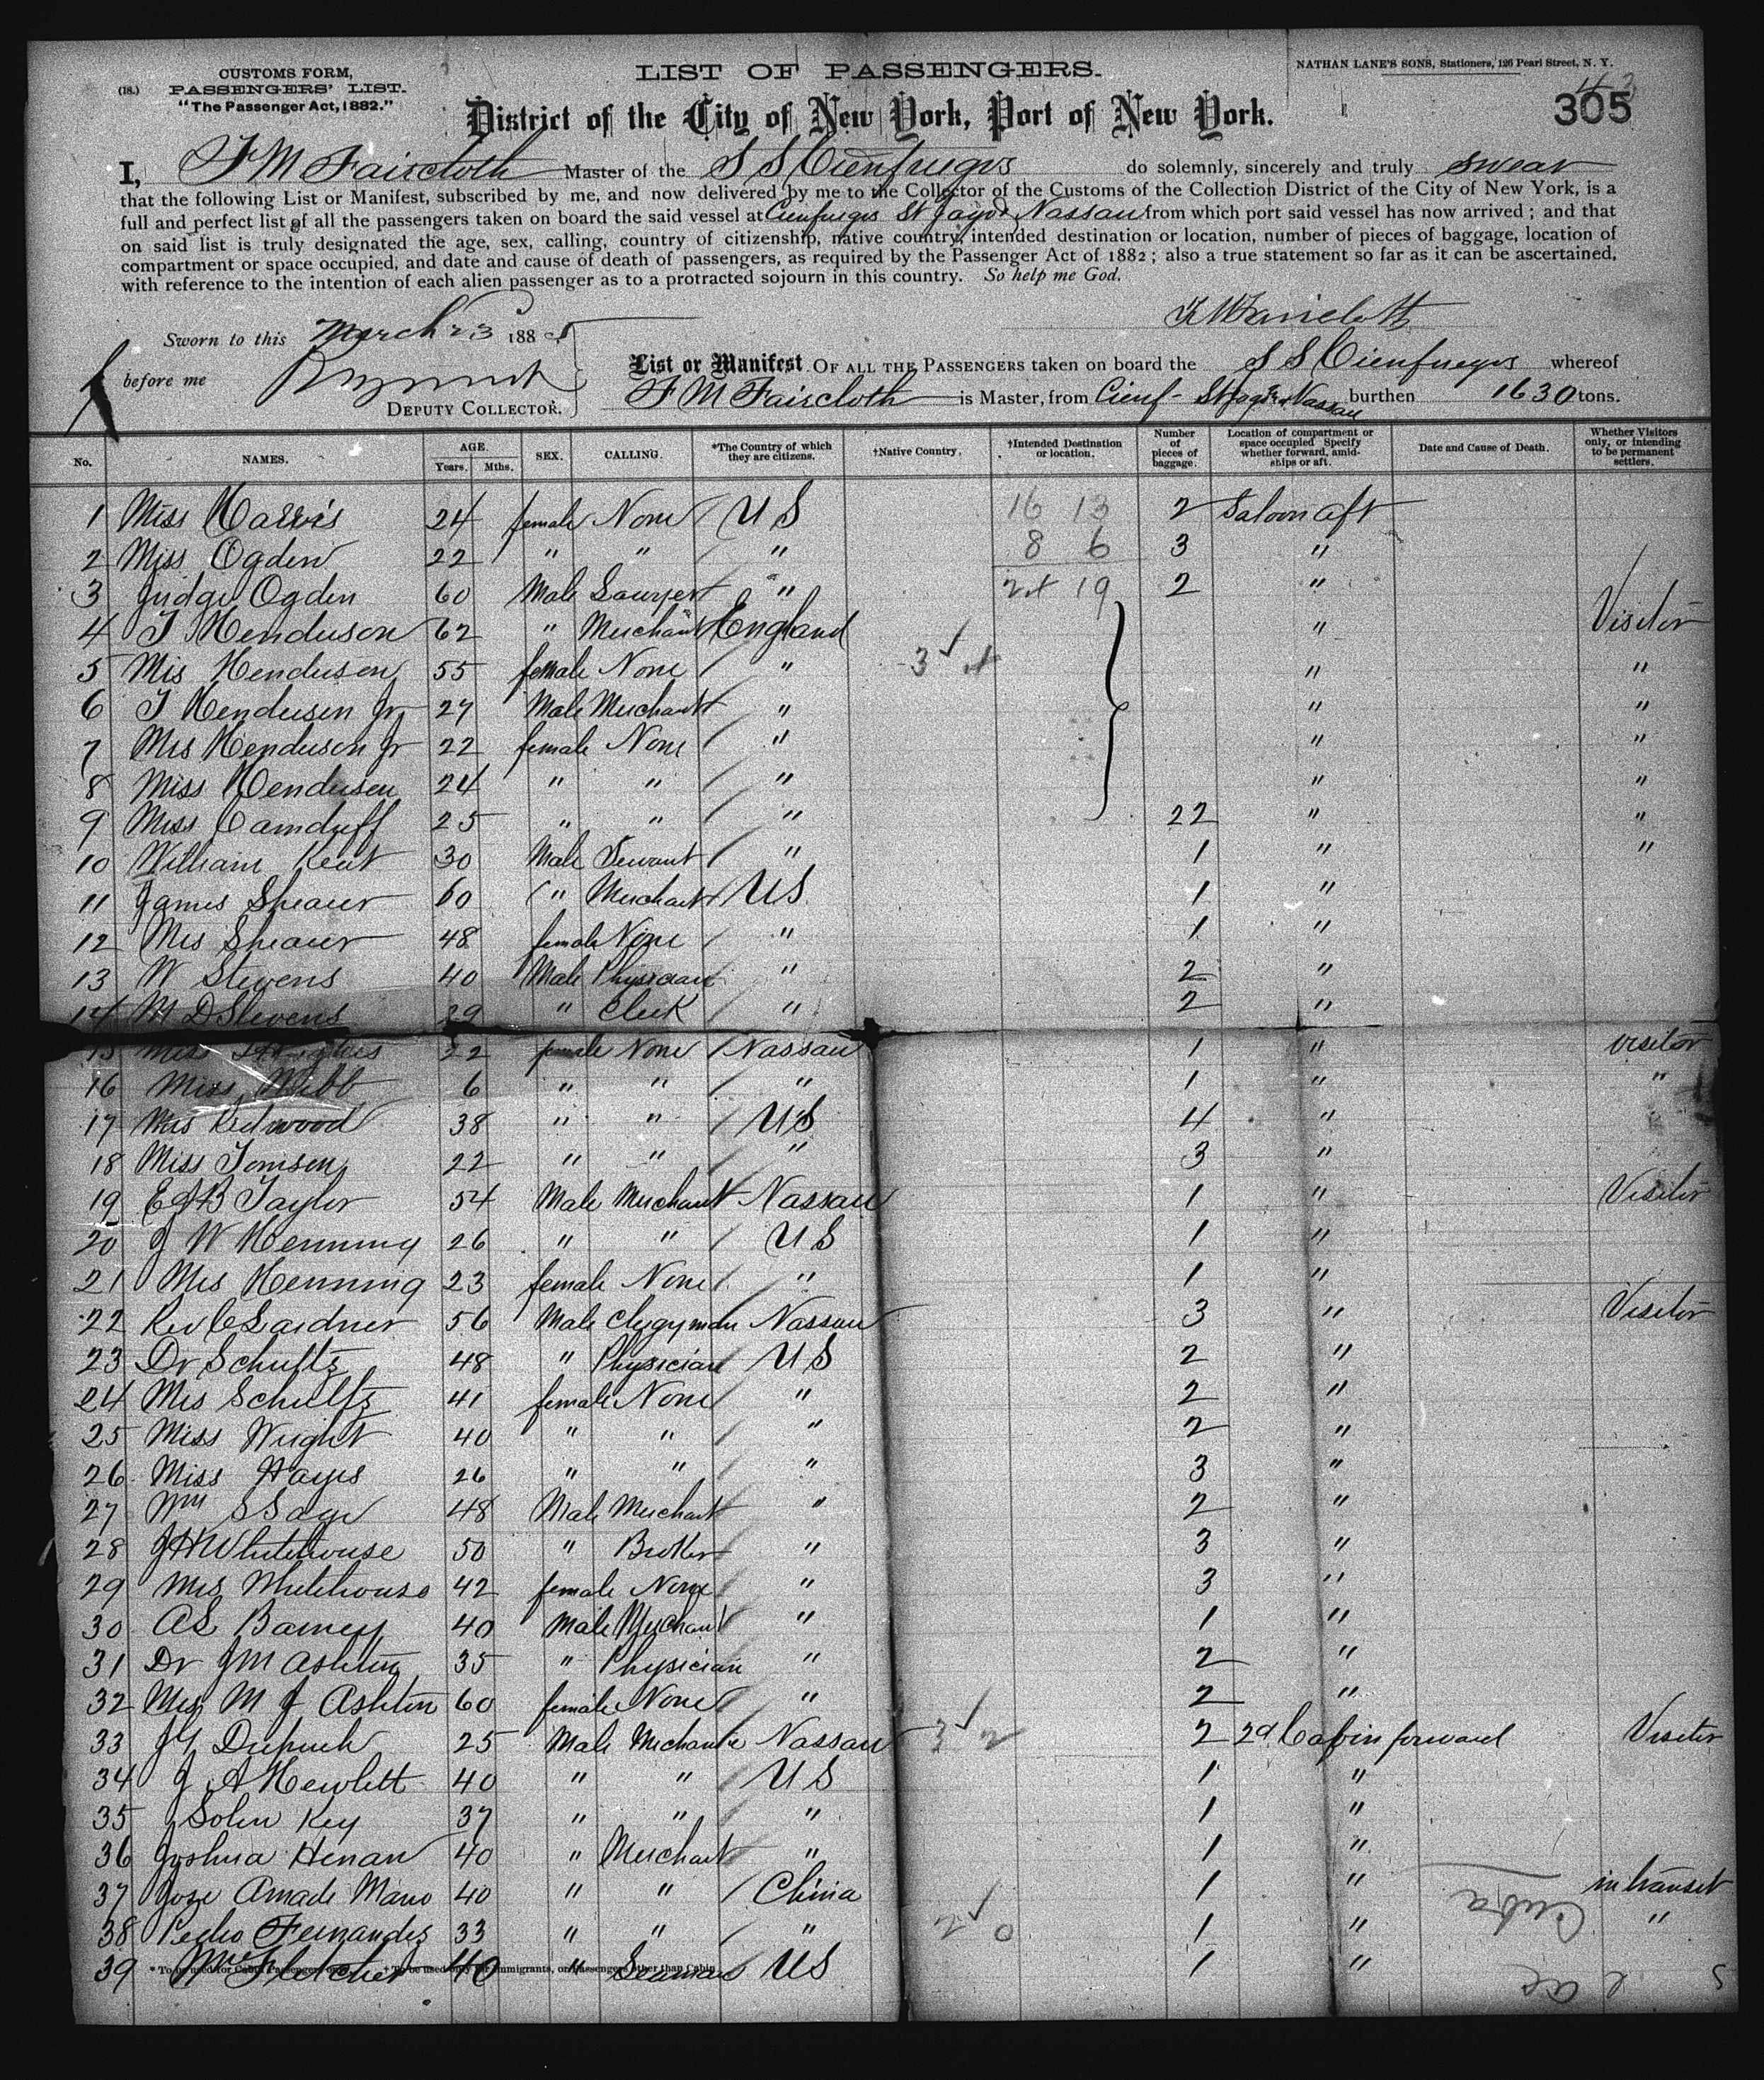 CUSTOMS FORM,
(18.) PASSENGERS' LIST.
"The Passenger Act, 1882."
LIST OF PASSENGERS.
NATHAN LANE'S SONS, Stationers, 126 Pearl Street, N. Y.
305
District of the City of New York, Port of New York.
I, F M Faircloth Master of the S S Cienfuegos do solemnly, sincerely and truly swear
that the following List or Manifest, subscribed by me, and now delivered by me to the Collector of the Customs of the Collection District of the City of New York, is a
full and perfect list of all the passengers taken on board the said vessel at Cienfuegos St Jago & Nassau from which port said vessel has now arrived ; and that
on said list is truly designated the age, sex, calling, country of citizenship, native country, intended destination or location, number of pieces of baggage, location of
compartment or space occupied, and date and cause of death of passengers, as required by the Passenger Act of 1882 ; also a true statement so far as it can be ascertained,
with reference to the intention of each alien passenger as to a protracted sojourn in this country. So help me God.
F M Faircloth
Sworn to this March 23 188 5
before me
DEPUTY COLLECTOR.
List or Manifest OF ALL THE PASSENGERS taken on board the S S Cienfuegos whereof
F M Faircloth is Master, from Cienf- St Jago & Nassau burthen 1630 tons.
No. NAMES. AGE. Years. Mths. SEX. CALLING. *The Country of which they are citizens. †Native Country. †Intended Destination or location. Number of pieces of baggage. Location of compartment or space occupied Specify whether forward, amidships or aft. Date and Cause of Death. Whether Visitors only, or intending to be permanent settlers.
1 Miss Harris 24 female None U S 16 13 2 Saloon aft
2 Miss Ogden 22 " " " 8 6 3 "
3 Judge Ogden 60 Male Lawyer " 24 19 2 "
4 T Henderson 62 " Merchant England " Visitor
5 Mrs Henderson 55 female None " 3 " "
6 T Henderson Jr 27 Male Merchant " " "
7 Mrs Henderson Jr 22 female None " " "
8 Miss Henderson 24 " " " " "
9 Miss Carnduff 25 " " " 22 " "
10 William Kent 30 Male Servant " 1 " "
11 James Shearer 60 " Merchant US 1 "
12 Mrs Shearer 48 female None " 1 "
13 W Stevens 40 Male Physician " 2 "
14 M D Stevens 29 " Clerk " 2 "
15 Miss 22 female None Nassau 1 " visitor
16 Miss Webb 6 " " " 1 " "
17 Mrs Redwood 38 " " US 4 "
18 Miss Tomson 22 " " " 3 "
19 E J B Taylor 54 Male Merchant Nassau 1 " Visitor
20 J W Henning 26 " " U S 1 "
21 Mrs Henning 23 female None " 1 "
22 Rev C Gardner 56 Male Clegyman Nassau 3 " Visitor
23 Dr Schultz 48 " Physician U S 2 "
24 Mrs Schultz 41 female None " 2 "
25 Miss Wright 40 " " " 2 "
26 Miss Hayes 26 " " " 3 "
27 Wm S Sage 48 Male Merchant " 2 "
28 J H Whitehouse 50 " Broker " 3 "
29 Mrs Whitehouse 42 female None " 3 "
30 A S Barney 40 Male Merchant " 1 "
31 Dr J M Ashton 35 " Physician " 2 "
32 Mrs M J Ashton 60 female None " 2 "
33 Dupuch 25 Male Mechanic Nassau 3 2 2 2d Cabin forward Visitor
34 J A Hewlett 40 " " U S 1 "
35 J John Key 37 " " " 1 "
36 Joshua Henan 40 " Merchant " 1 "
37 Jose Amade Mano 40 " " China 1 " in transit
38 Pedro Fernandes 33 " " " 2 0 1 " Cuba "
39 Wm Fletcher 40 " Seaman US 1 "
* To be used for Cabin Passengers only. † To be used only for Immigrants, or Passengers other than Cabin